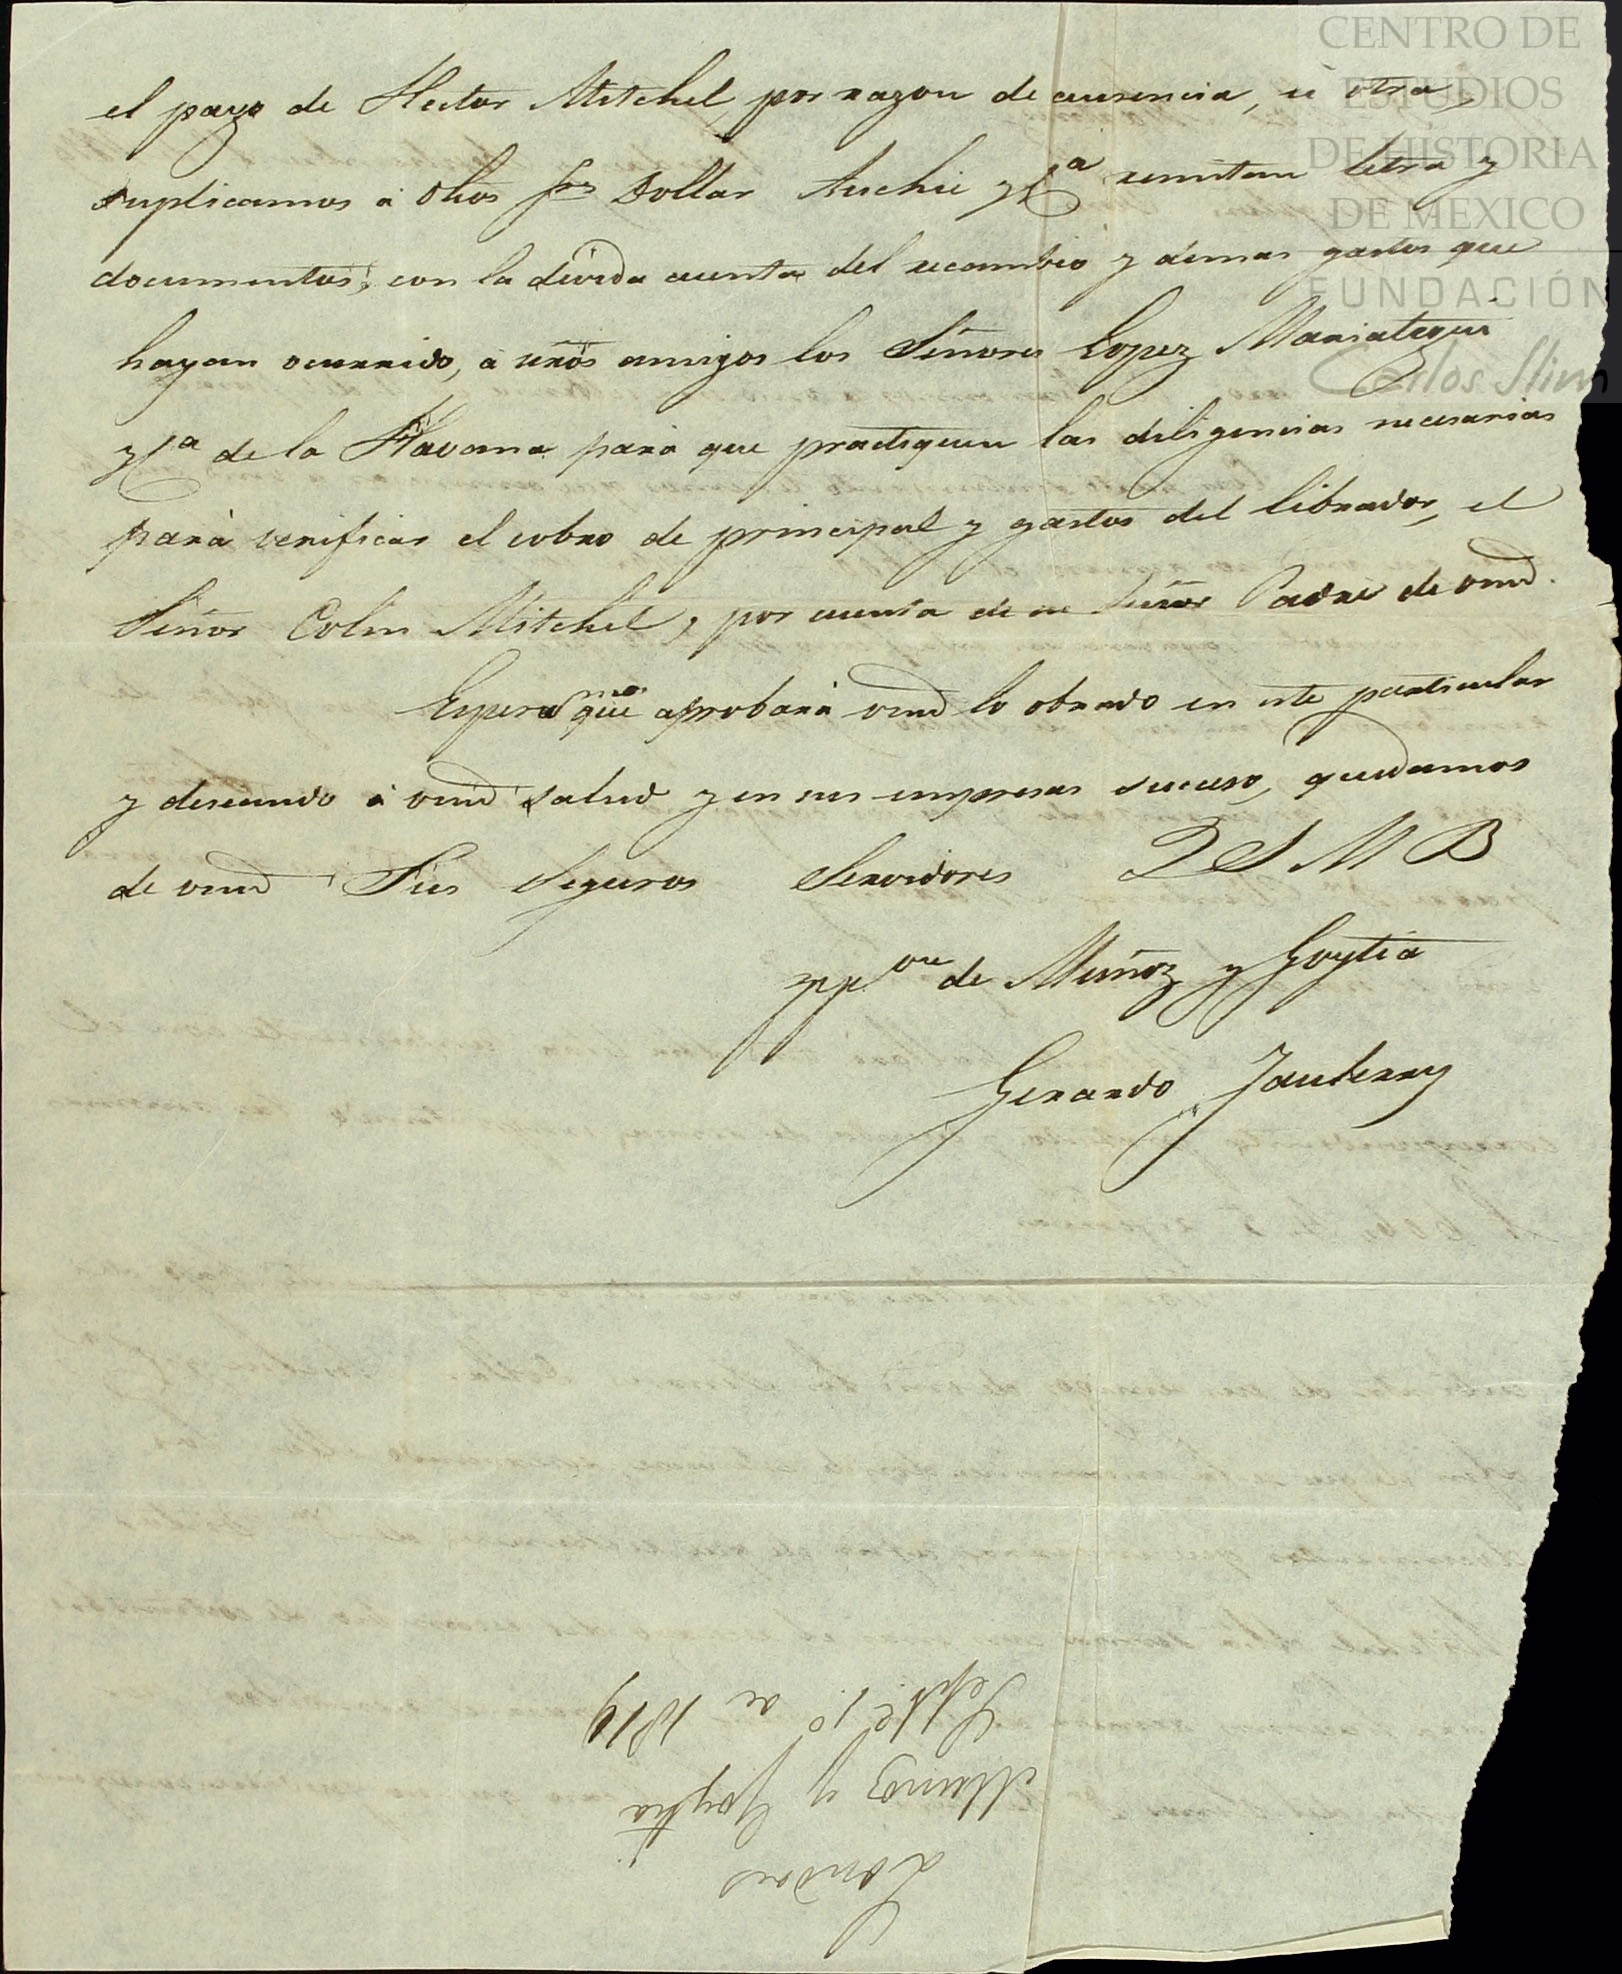 el pago de Hector Mitchel, por razon de ausencia, u otra,
suplicamos à dhos Sres Dollar Auchie y Ca remitan letra y
documentos, con la devida cuenta del recambio y demas gastos que
hayan ocurrido, à nros amigos los Señores Lopez Mariategui
y Ca de la Havana parà que practiquen las diligencias necesarias
parà verificar el cobro de principal y gastos del librador, el
Señor Colin Mitchel, por cuenta de su Señor Padre de vmd.
Espero que aprobarà vmd lo obrado en este particular
y deseando à vmd salud y en sus empresas suceso, quedamos
de vmd Sus Seguros Servidores Q S M B
pp on de Muñoz y Goytia
Gerardo
Londres
Munoz y Goytia
Sept.e 1.o de 1819
CENTRO DE
ESTUDIOS
DE HISTORIA
DE MEXICO
FUNDACIÓN
Carlos Slim